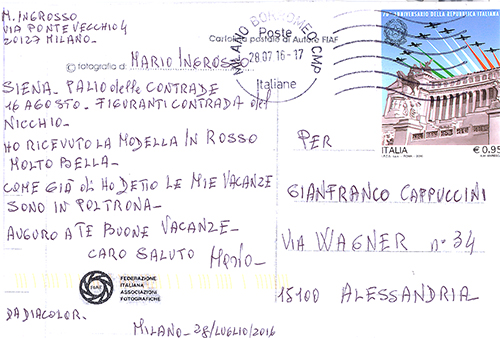 M. INGROSSO
VIA PONTEVECCHIO 4
20127 MILANO_
Cartolina postale di Autore FIAF
© fotografia di MARIO INGROSSO
SIENA. PALIO delle CONTRADE
16 AGOSTO_ FIGURANTI CONTRADA del
NICCHIO_
HO RICEVUTO LA MODELLA IN ROSSO
MOLTO BELLA_
COME GIÀ di HO DETTO LE MIE VACANZE
SONO IN POLTRONA_
AUGURO A TE BUONE VACANZE_
CARO SALUTO Mario_
FIAF
FEDERAZIONE
ITALIANA
ASSOCIAZIONI
FOTOGRAFICHE
DADIACOLOR.
MILANO_28/LUGLIO/2016
Poste
MILANO BORROMEO CMP
28.07.16-17
Italiane
70° ANNIVERSARIO DELLA REPUBBLICA ITALIANA
ITALIA
€ 0,95
PER
GIANFRANCO CAPPUCCINI
VIA WAGNER n° 34
15100 ALESSANDRIA